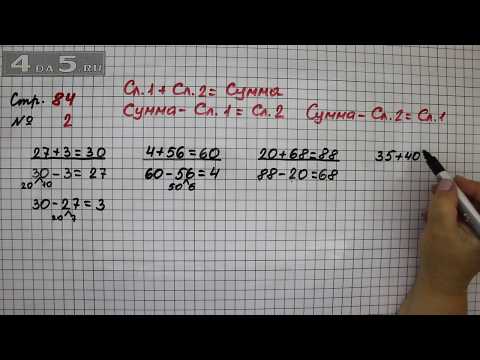 4 DA 5.RU
Стр. 84
№ 2
Сл.1 + Сл.2 = Сумма
Сумма - Сл.1 = Сл.2 Сумма - Сл.2 = Сл.1
27+3=30 4+56=60 20+68=88 35+40
30-3=27 60-56=4 88-20=68
20 10 50 6
30-27=3
20 7